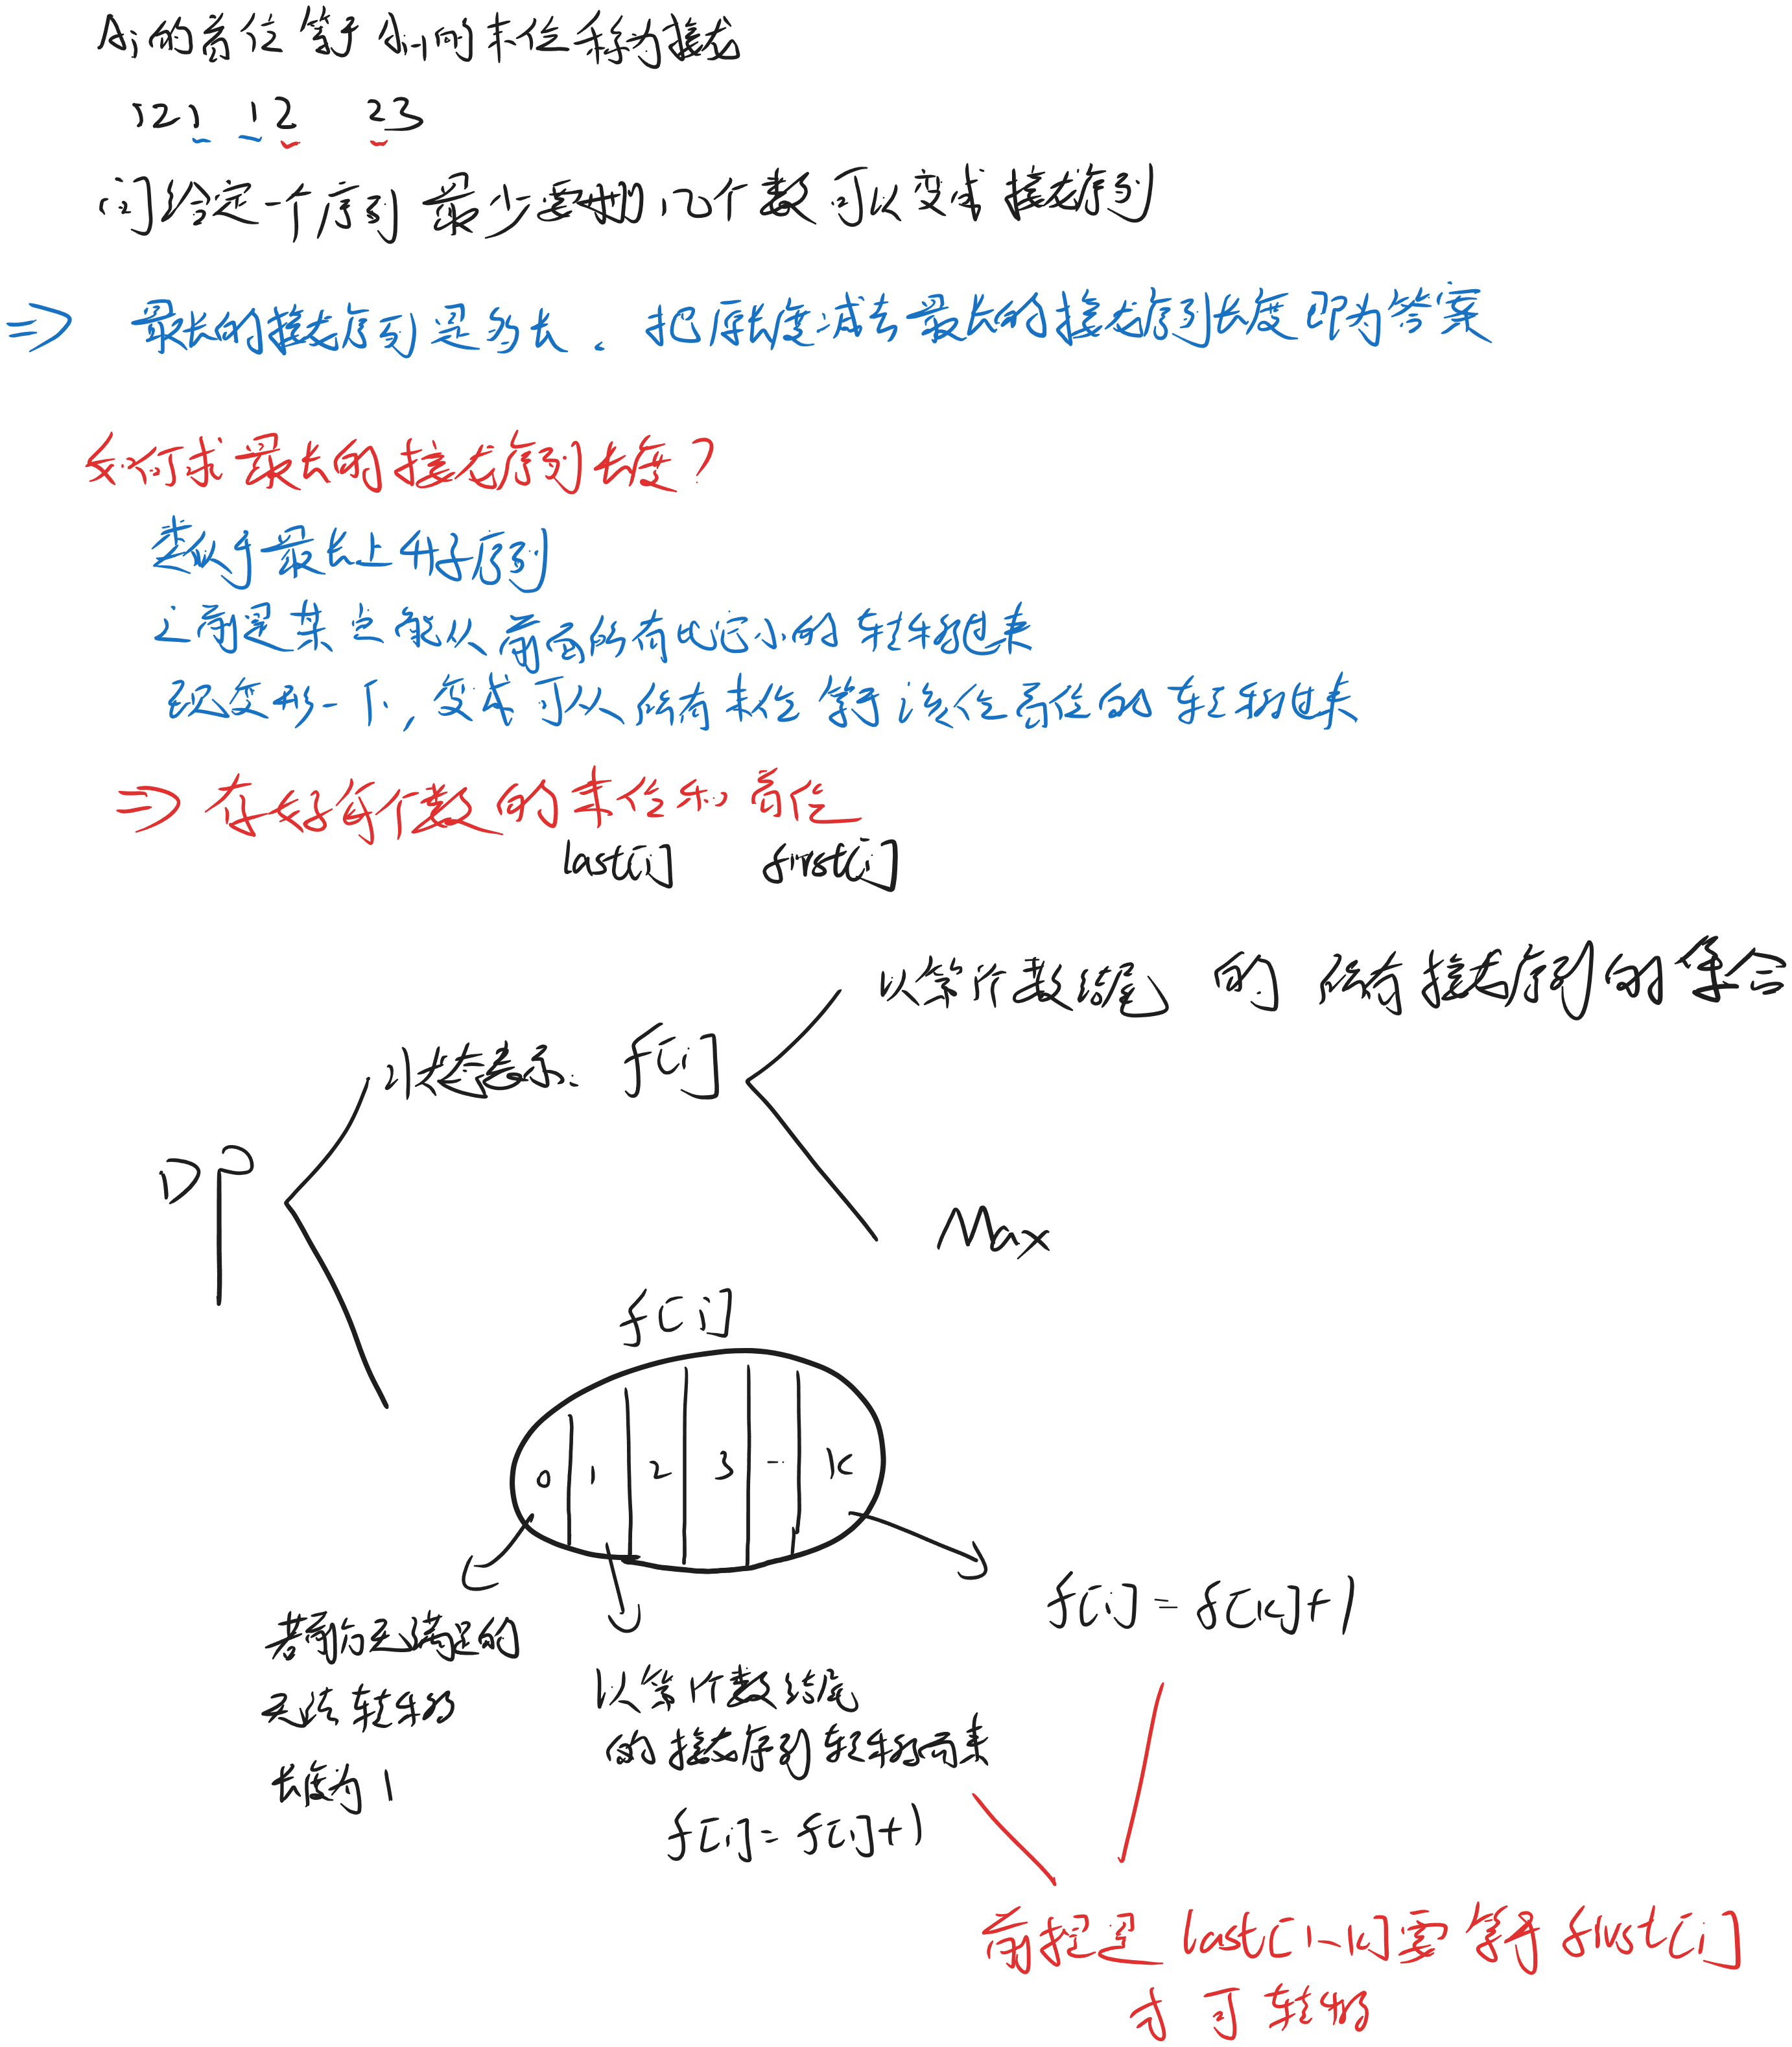 Ai的首位等于Ai-1的末位称为接龙
121 12 23
问给定一个序列 最少需要删几个数可以变成接龙序列
=> 最长的接龙序列是多长. 把原长度减去最长的接龙序列长度即为答案
如何求最长的接龙序列长度?
类似于最长上升子序列
之前是某位能从前面所有比它小的转移过来
现变形一下, 变成可以从所有末位等于该位首位的转移过来
=> 存好每个数的末位和首位
last[i] first[i]
以第i个数结尾 的 所有接龙序列的集合
状态表示: f[i]
DP
Max
f[i]
0 1 2 3 -- k
f[i] = f[k]+1
若前面无满足的
无法转移
长度为1
以第1个数结尾
的接龙序列转移而来
f[i] = f[1]+1
前提是 last[1-k]要等于first[i]
才可转移